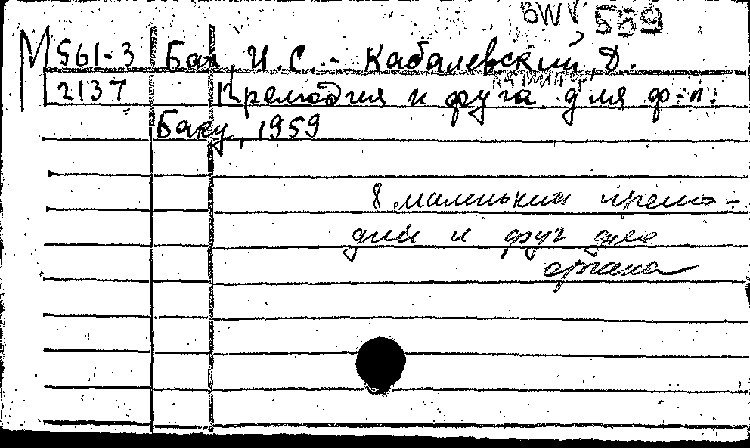 BWV 559
М 561-3 Бах, И. С. - Кабалевский, Д.
2137 Прелюдия и фуга для ф-п.
Баку, 1959
8 маленьких прелю-
дий и фуг для
органа